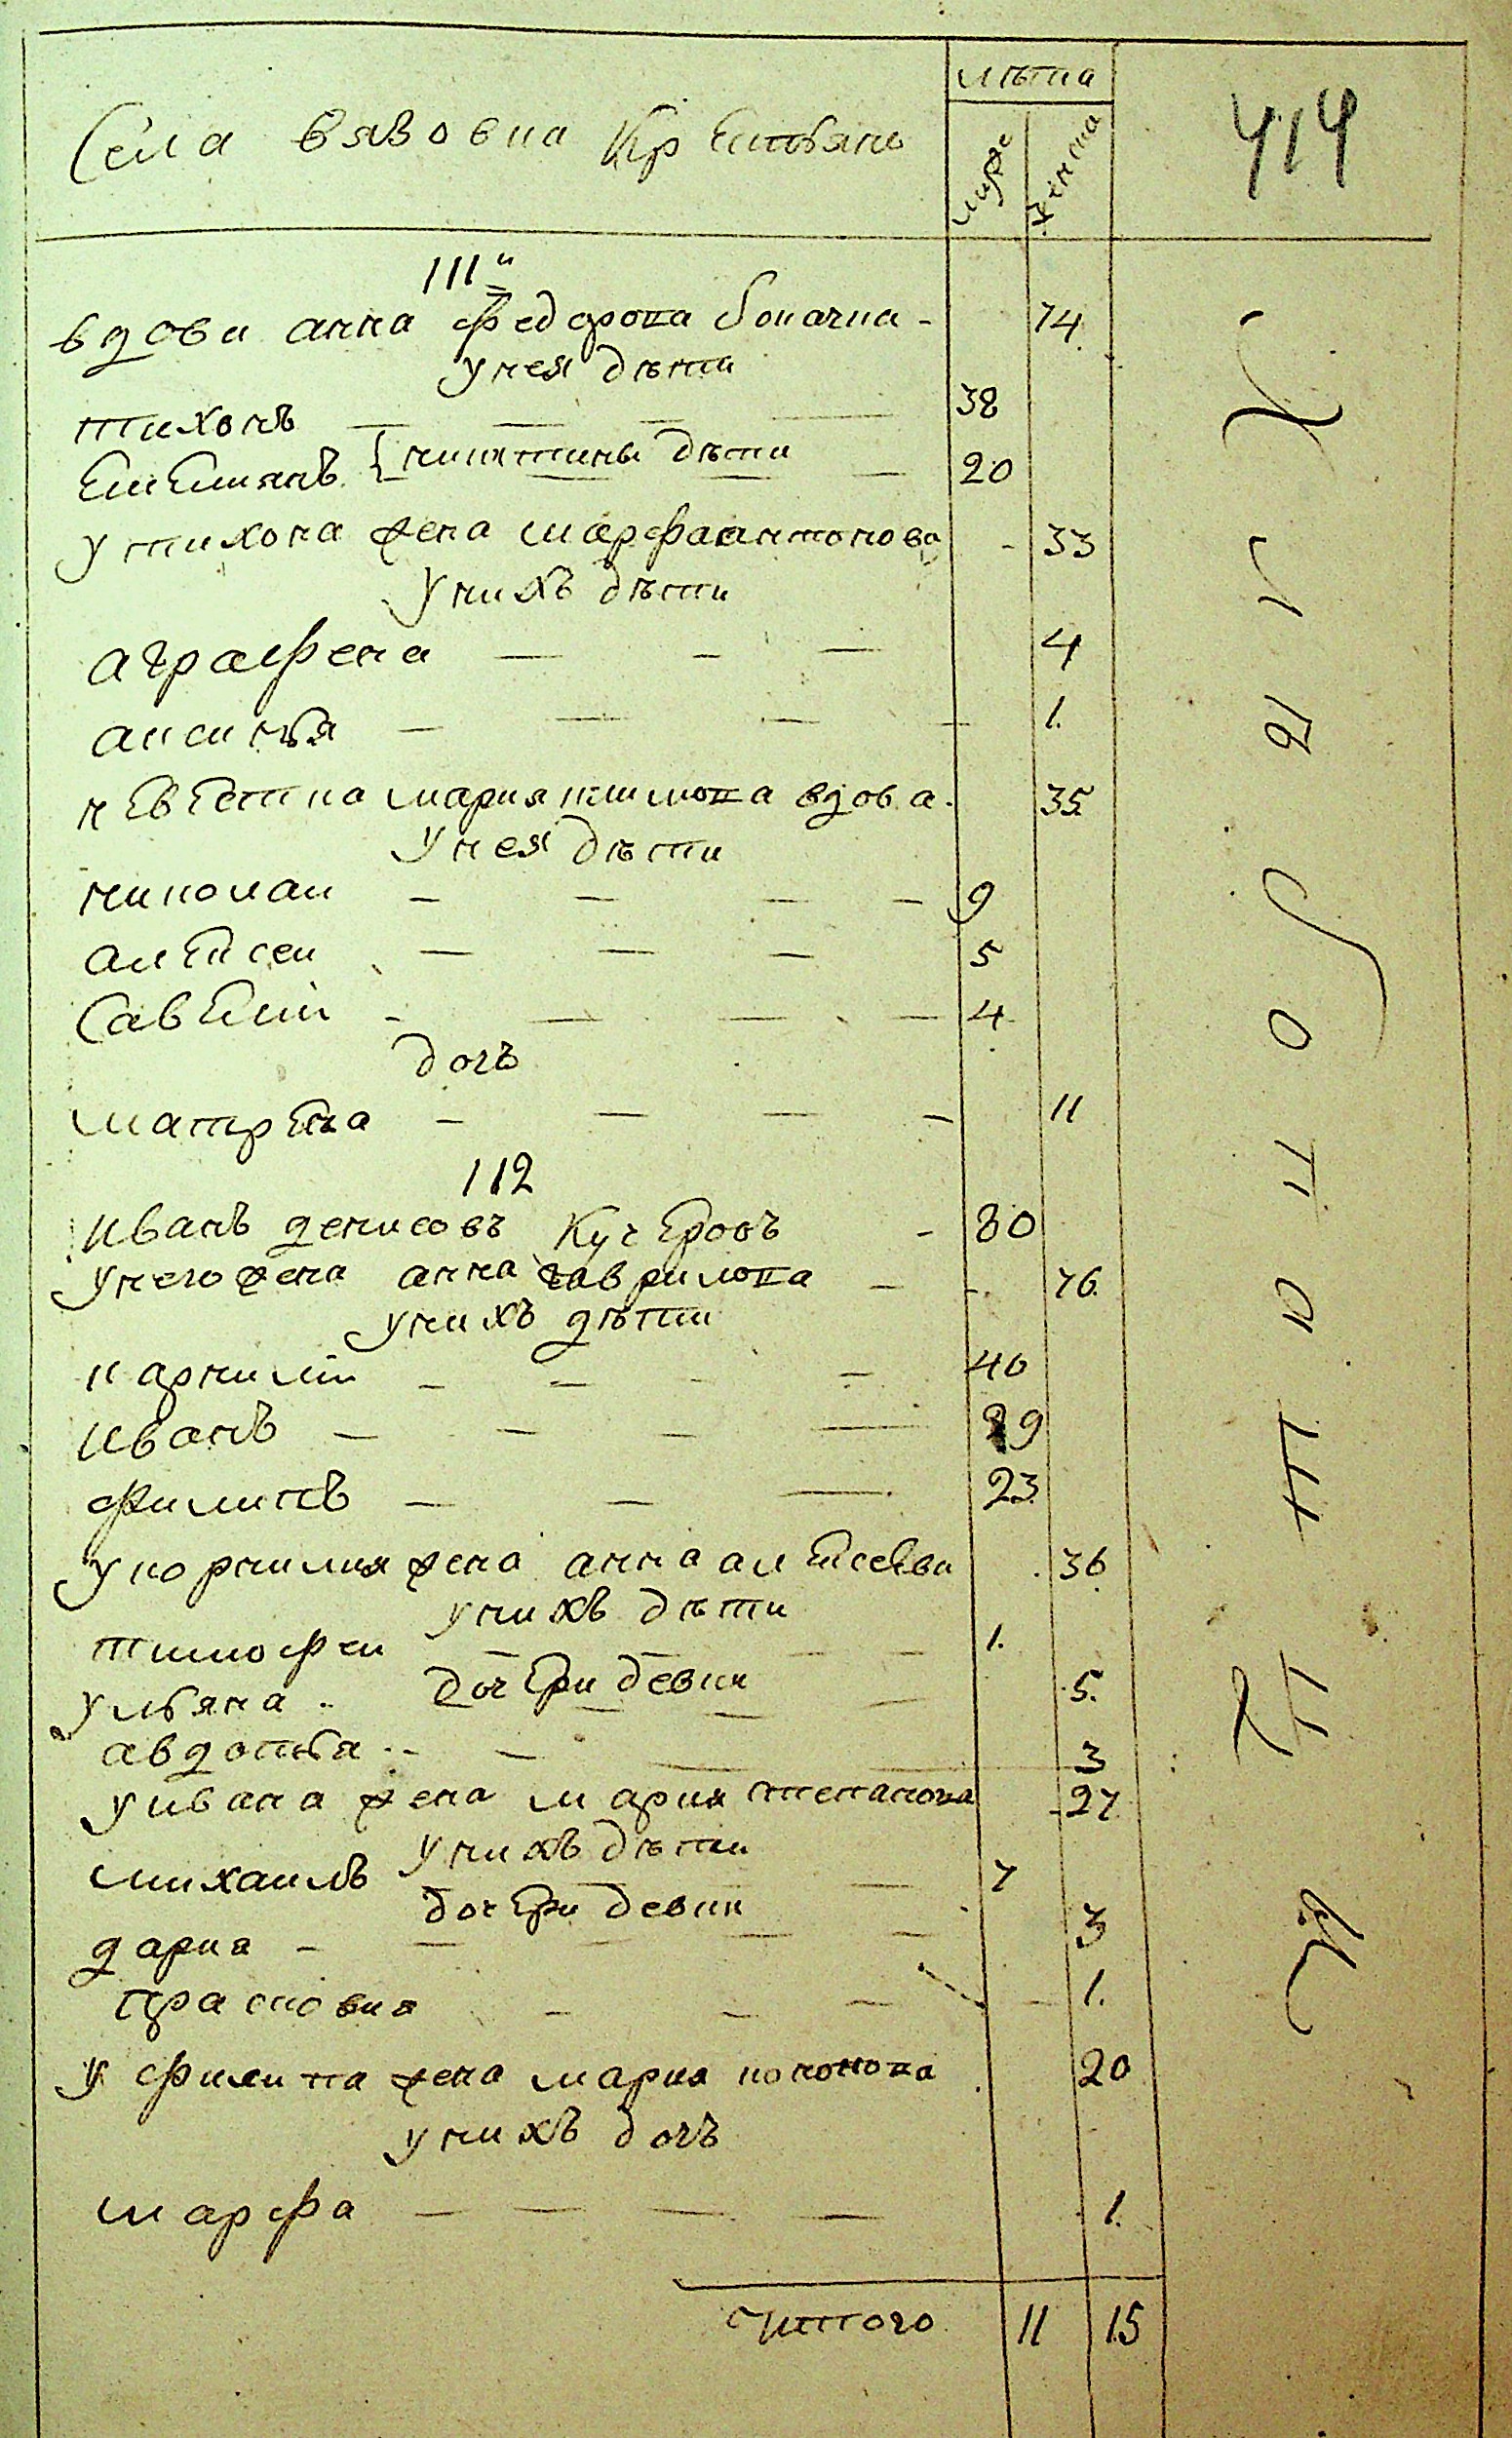 лѣта
Села вязовка Крестьянъ
муже
женска
414
111й
вдова анна федорова
74
у нея дѣти
тихонъ 38
емельянъ никитины дѣти 20
у тихона жена марфа антонова 33
у нихъ дѣти
аграфена 4
аксинья 1
невестка мария климова вдова 35
у нея дѣти
николаи 9
алексеи 5
Савелий 4
дочь
матрена 11
112
иванъ денисовъ Кучеровъ 80
у него жена анна гаврилова 76
у нихъ дѣти
карнилий 40
иванъ 29
филипъ 23
у корнилия жена анна алексеева 36
у нихъ дѣти
тимофеи 1
дочери девки
ульяна 5
авдотья 3
у ивана жена мария степанова 27
у нихъ дѣти
михаилъ 7
дочери девки
дарья 3
прасковия 1
у филипа жена мария кононова 20
у нихъ дочь
марфа 1
итого 11 15